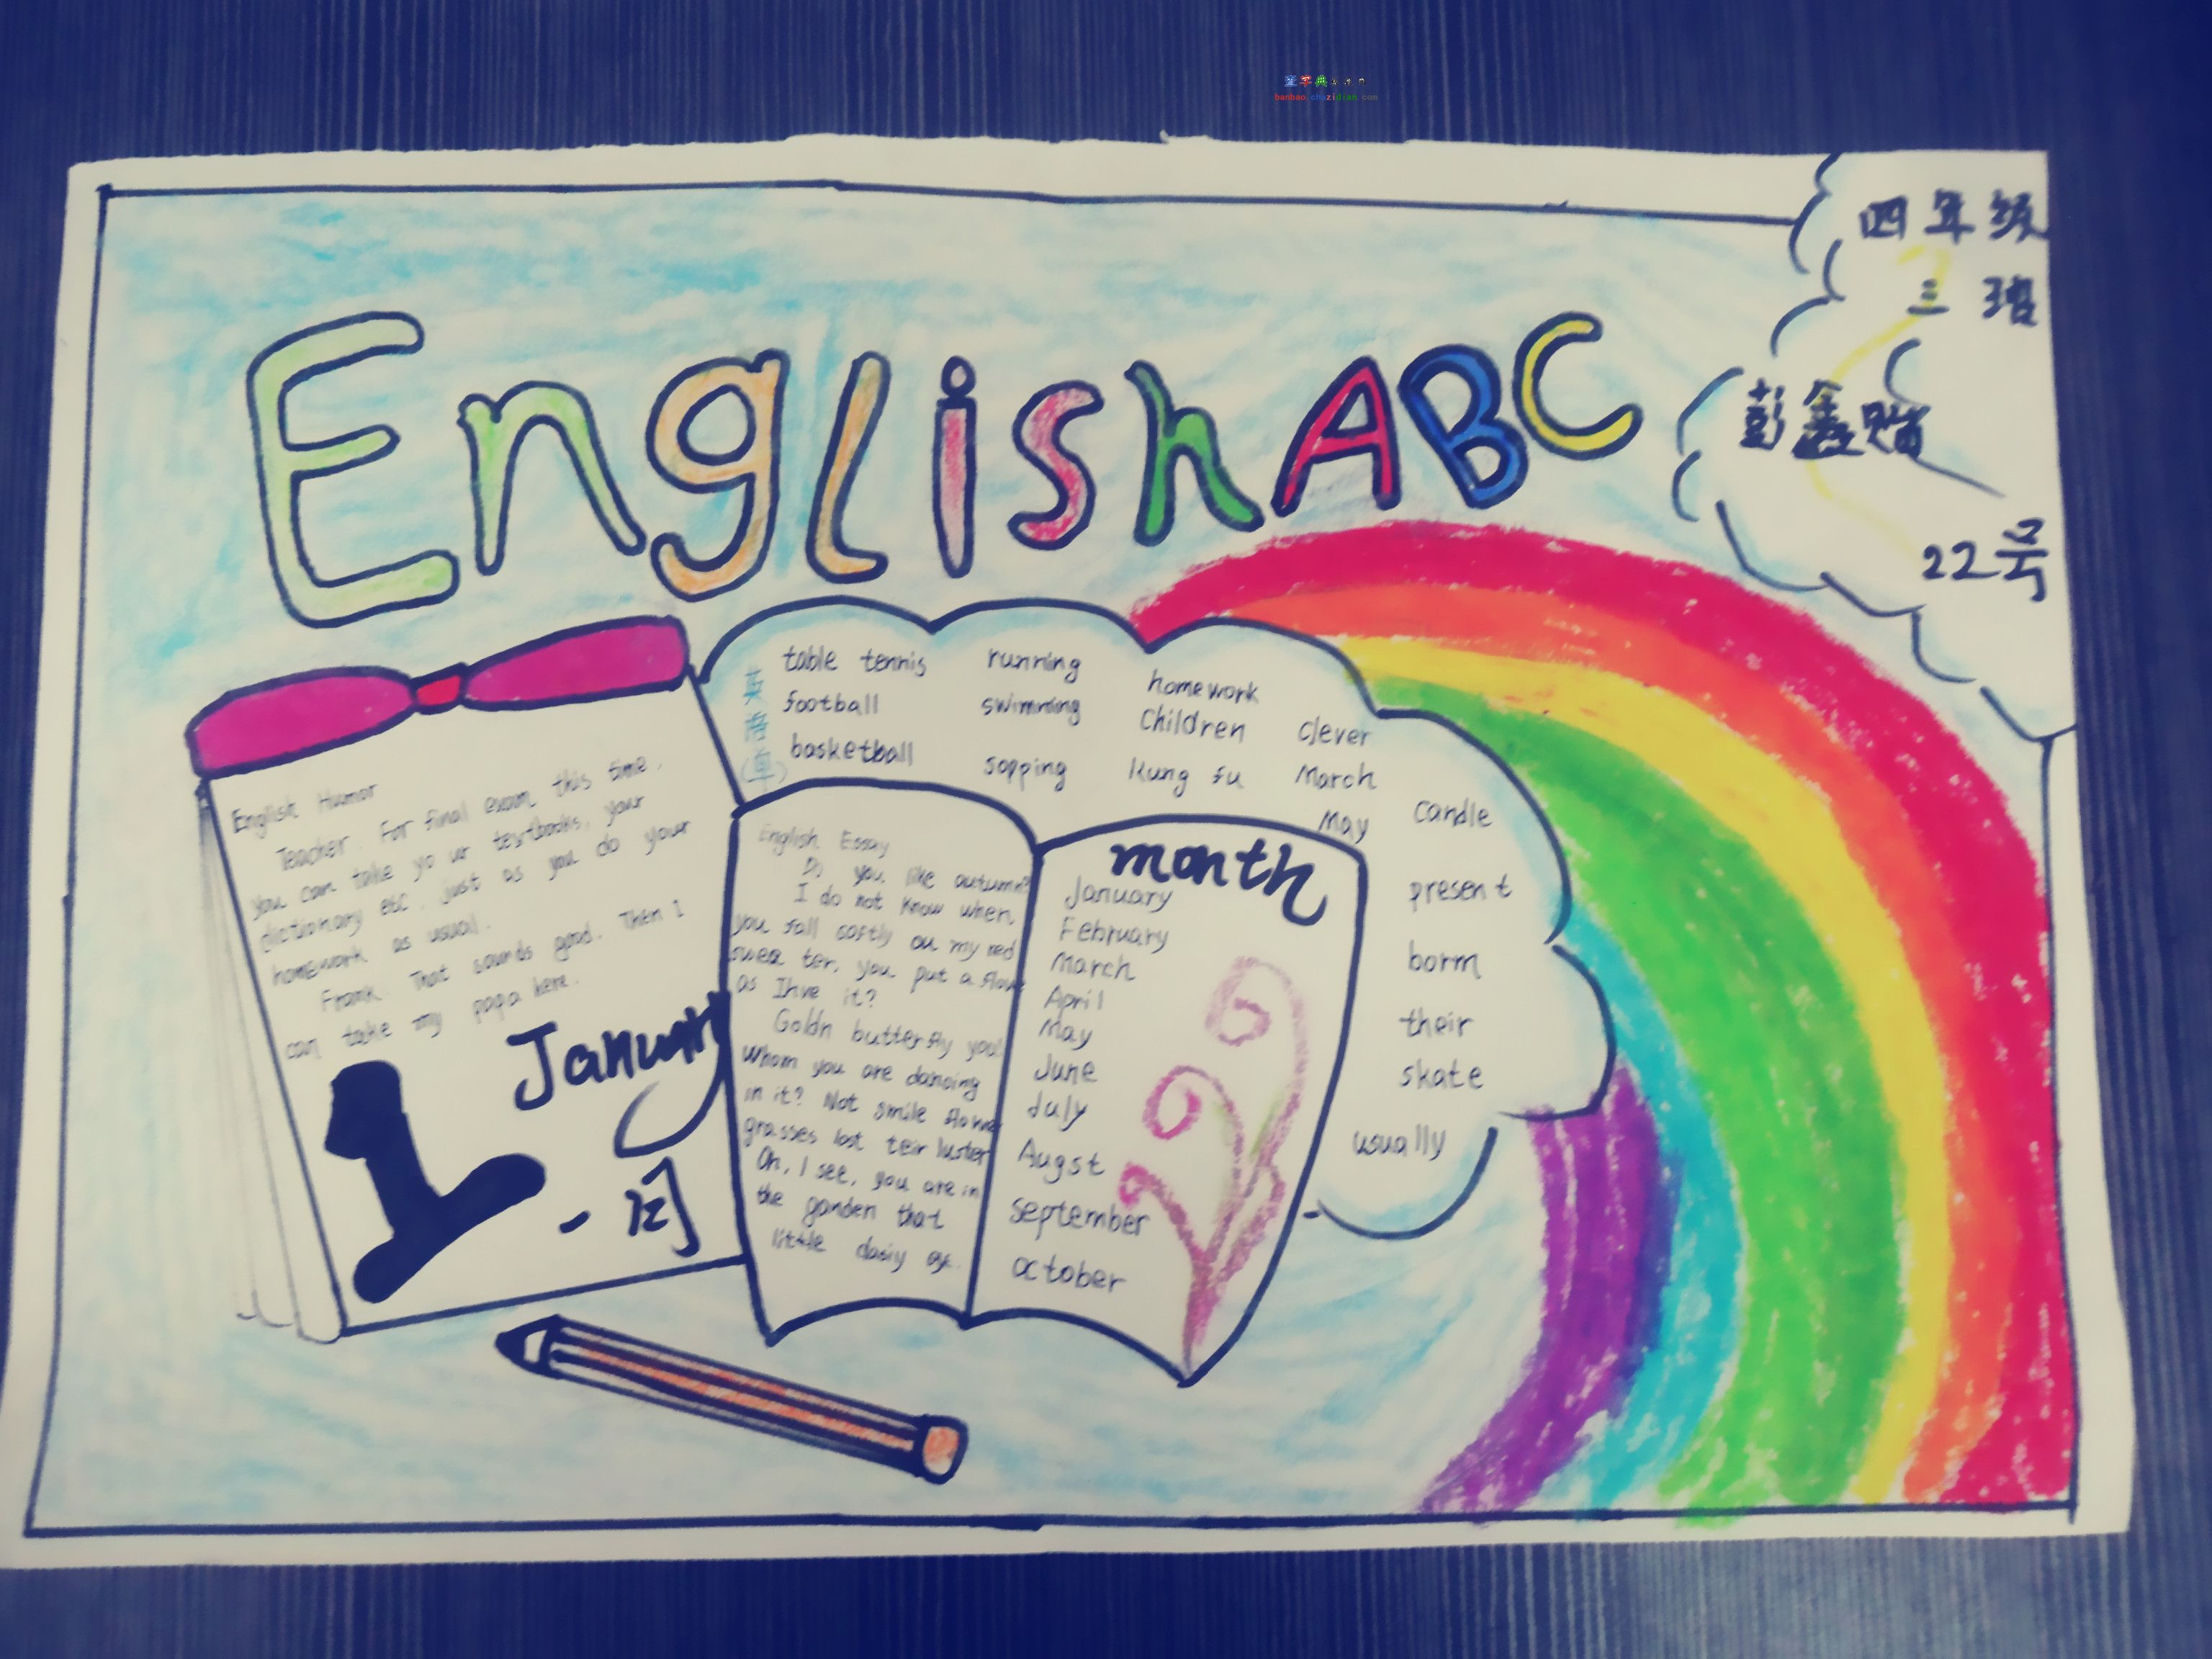 banbao.chazidian.com
四年级
三班
彭鑫
22号
English ABC
English Humor
Teacher. For final exam this time.
you can take yo ur textbooks, your
dictionary etc. just as you do your
homework as usual.
Frank. That sounds good. Then I
can take my papa here.
January
一月
table tennis running homework
football swimming children clever
basketball sopping kung fu March
May candle
present
borm
their
skate
usually
English Essay
Do you like autumn?
I do not know when
you fall softly on my red
swea ter, you put a flow
as Ihve it?
Goldn butterfly you!
Whom you are dancing
in it? Not smile flowe
grasses lost teir luster
Oh, I see, you are in
the ganden that
little dasiy
month
January
February
March
April
May
June
July
Augst
september
october